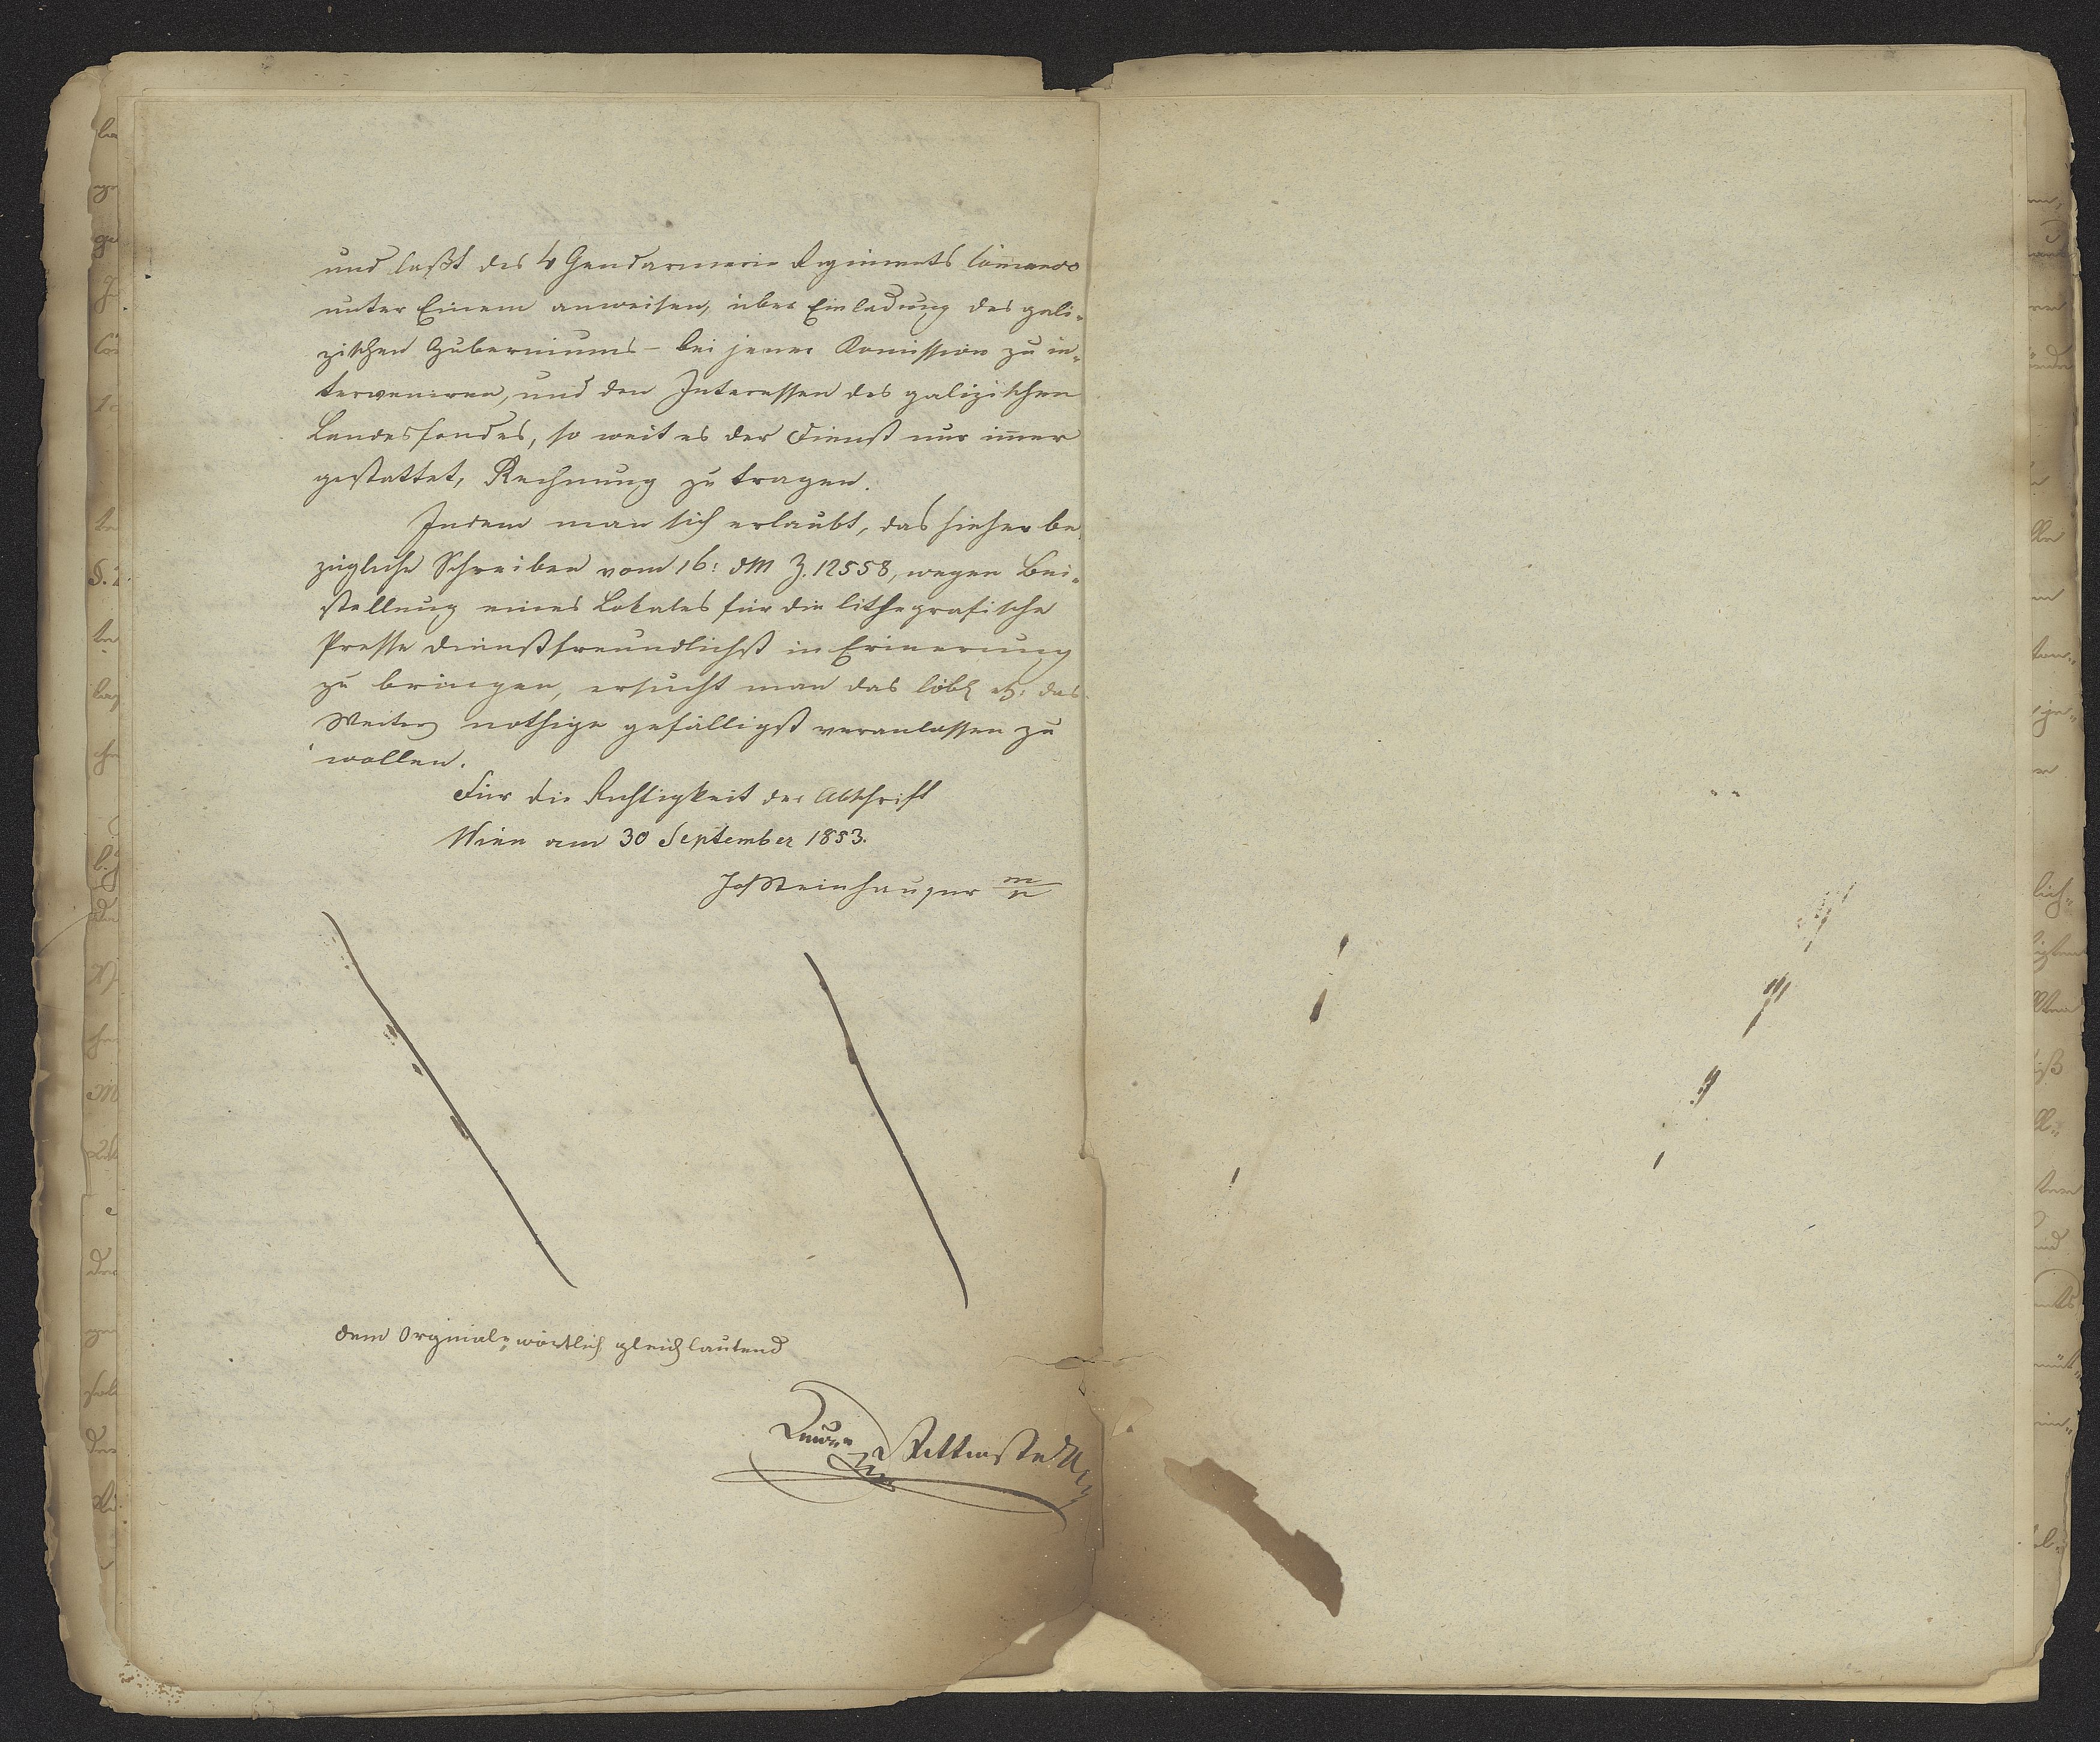 und laßt des 4 Gendarmerie Regiments Comando
unter Einem anweisen, über Einladung des gali-
zischen Guberniums – bei jener Komission zu in-
terveniren, und den Interessen des galizischen
Landesfondes, so weit es der Dienst nur imer
gestattet, Rechnung zu tragen.
Indem man sich erlaubt, das hieher be
zügliche Schreiben vom 16: dM Z. 12558, wegen Bei-
stellung eines Lokales für die lithografische
Presse dienstfreundlichst in Erinerung
zu bringen, ersucht man das löbl das
Weiters nothige gefälligst veranlassen zu
wollen.
Für die Richtigkeit der Abschrift
Wien am 30 September 1853.
Steinhauzer m/p
dem Orginale wörtlich gleichlautend